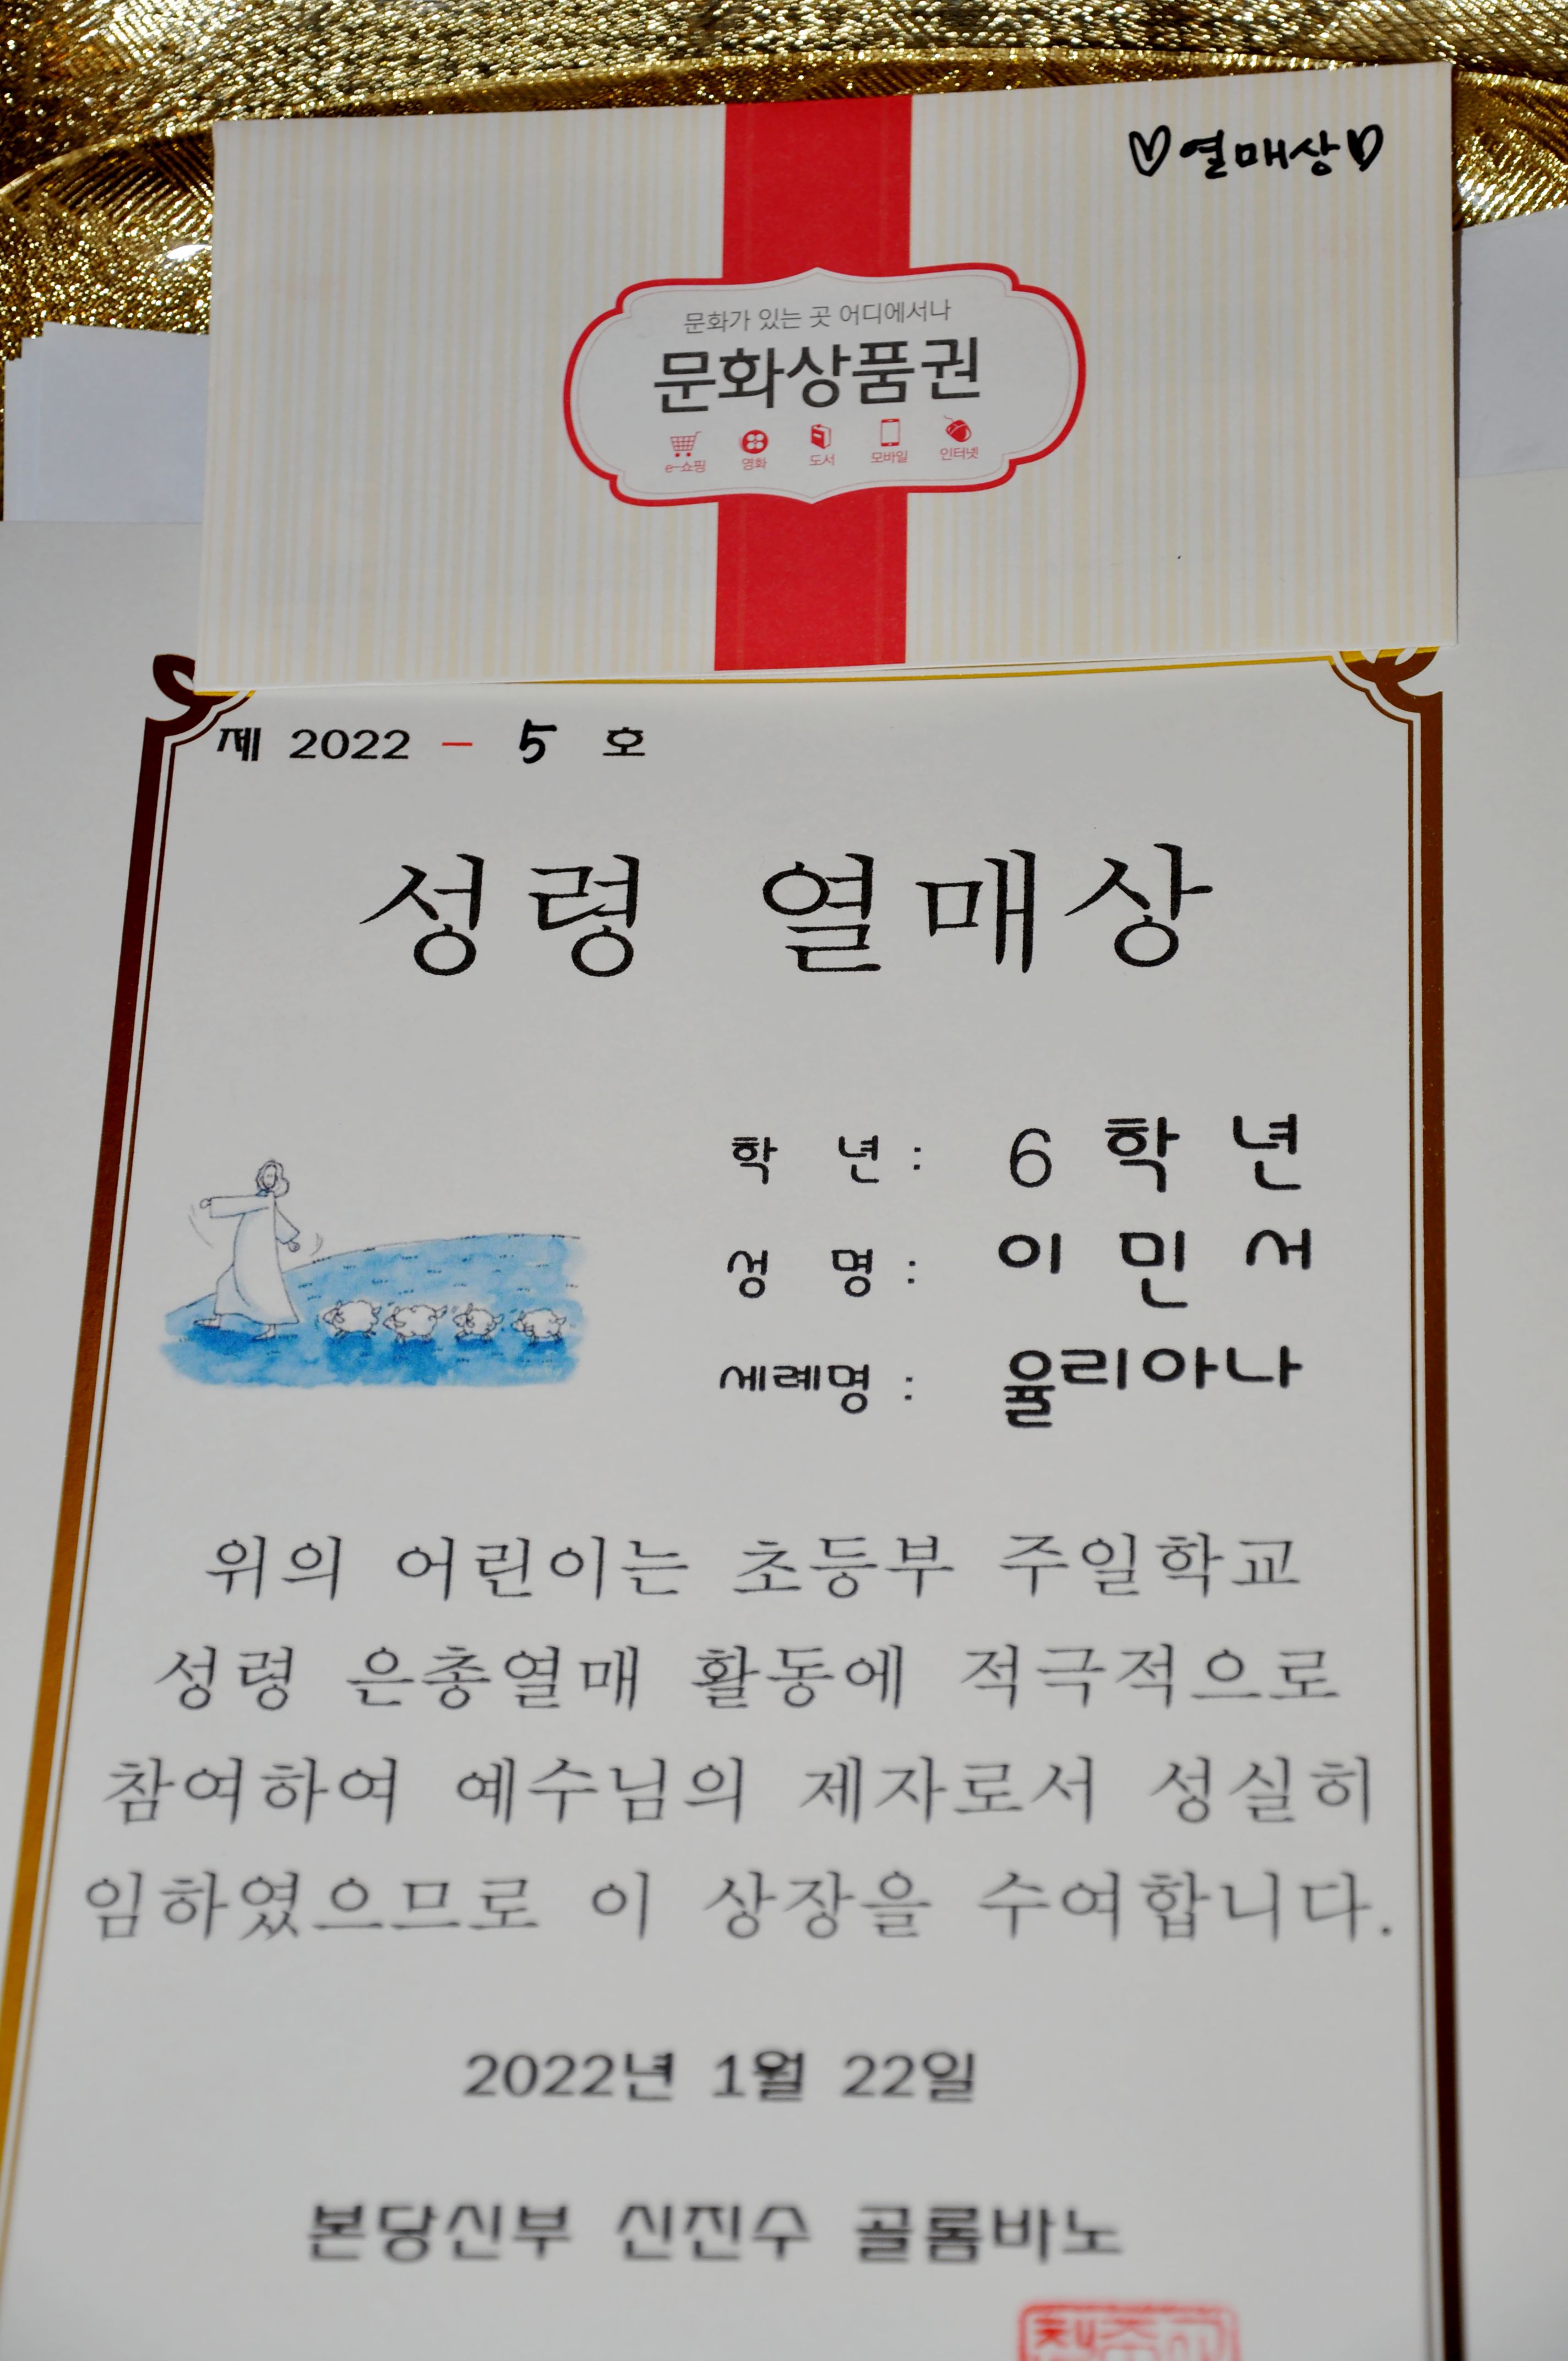 ♡열매상♡
문화가 있는 곳 어디에서나
문화상품권
e-쇼핑 영화 도서 모바일 인터넷
제 2022 - 5 호
성령 열매상
학 년 : 6 학 년
성 명 : 이 민 서
세례명 : 율리아나
위의 어린이는 초등부 주일학교
성령 은총열매 활동에 적극적으로
참여하여 예수님의 제자로서 성실히
임하였으므로 이 상장을 수여합니다.
2022년 1월 22일
본당신부 신진수 골롬바노